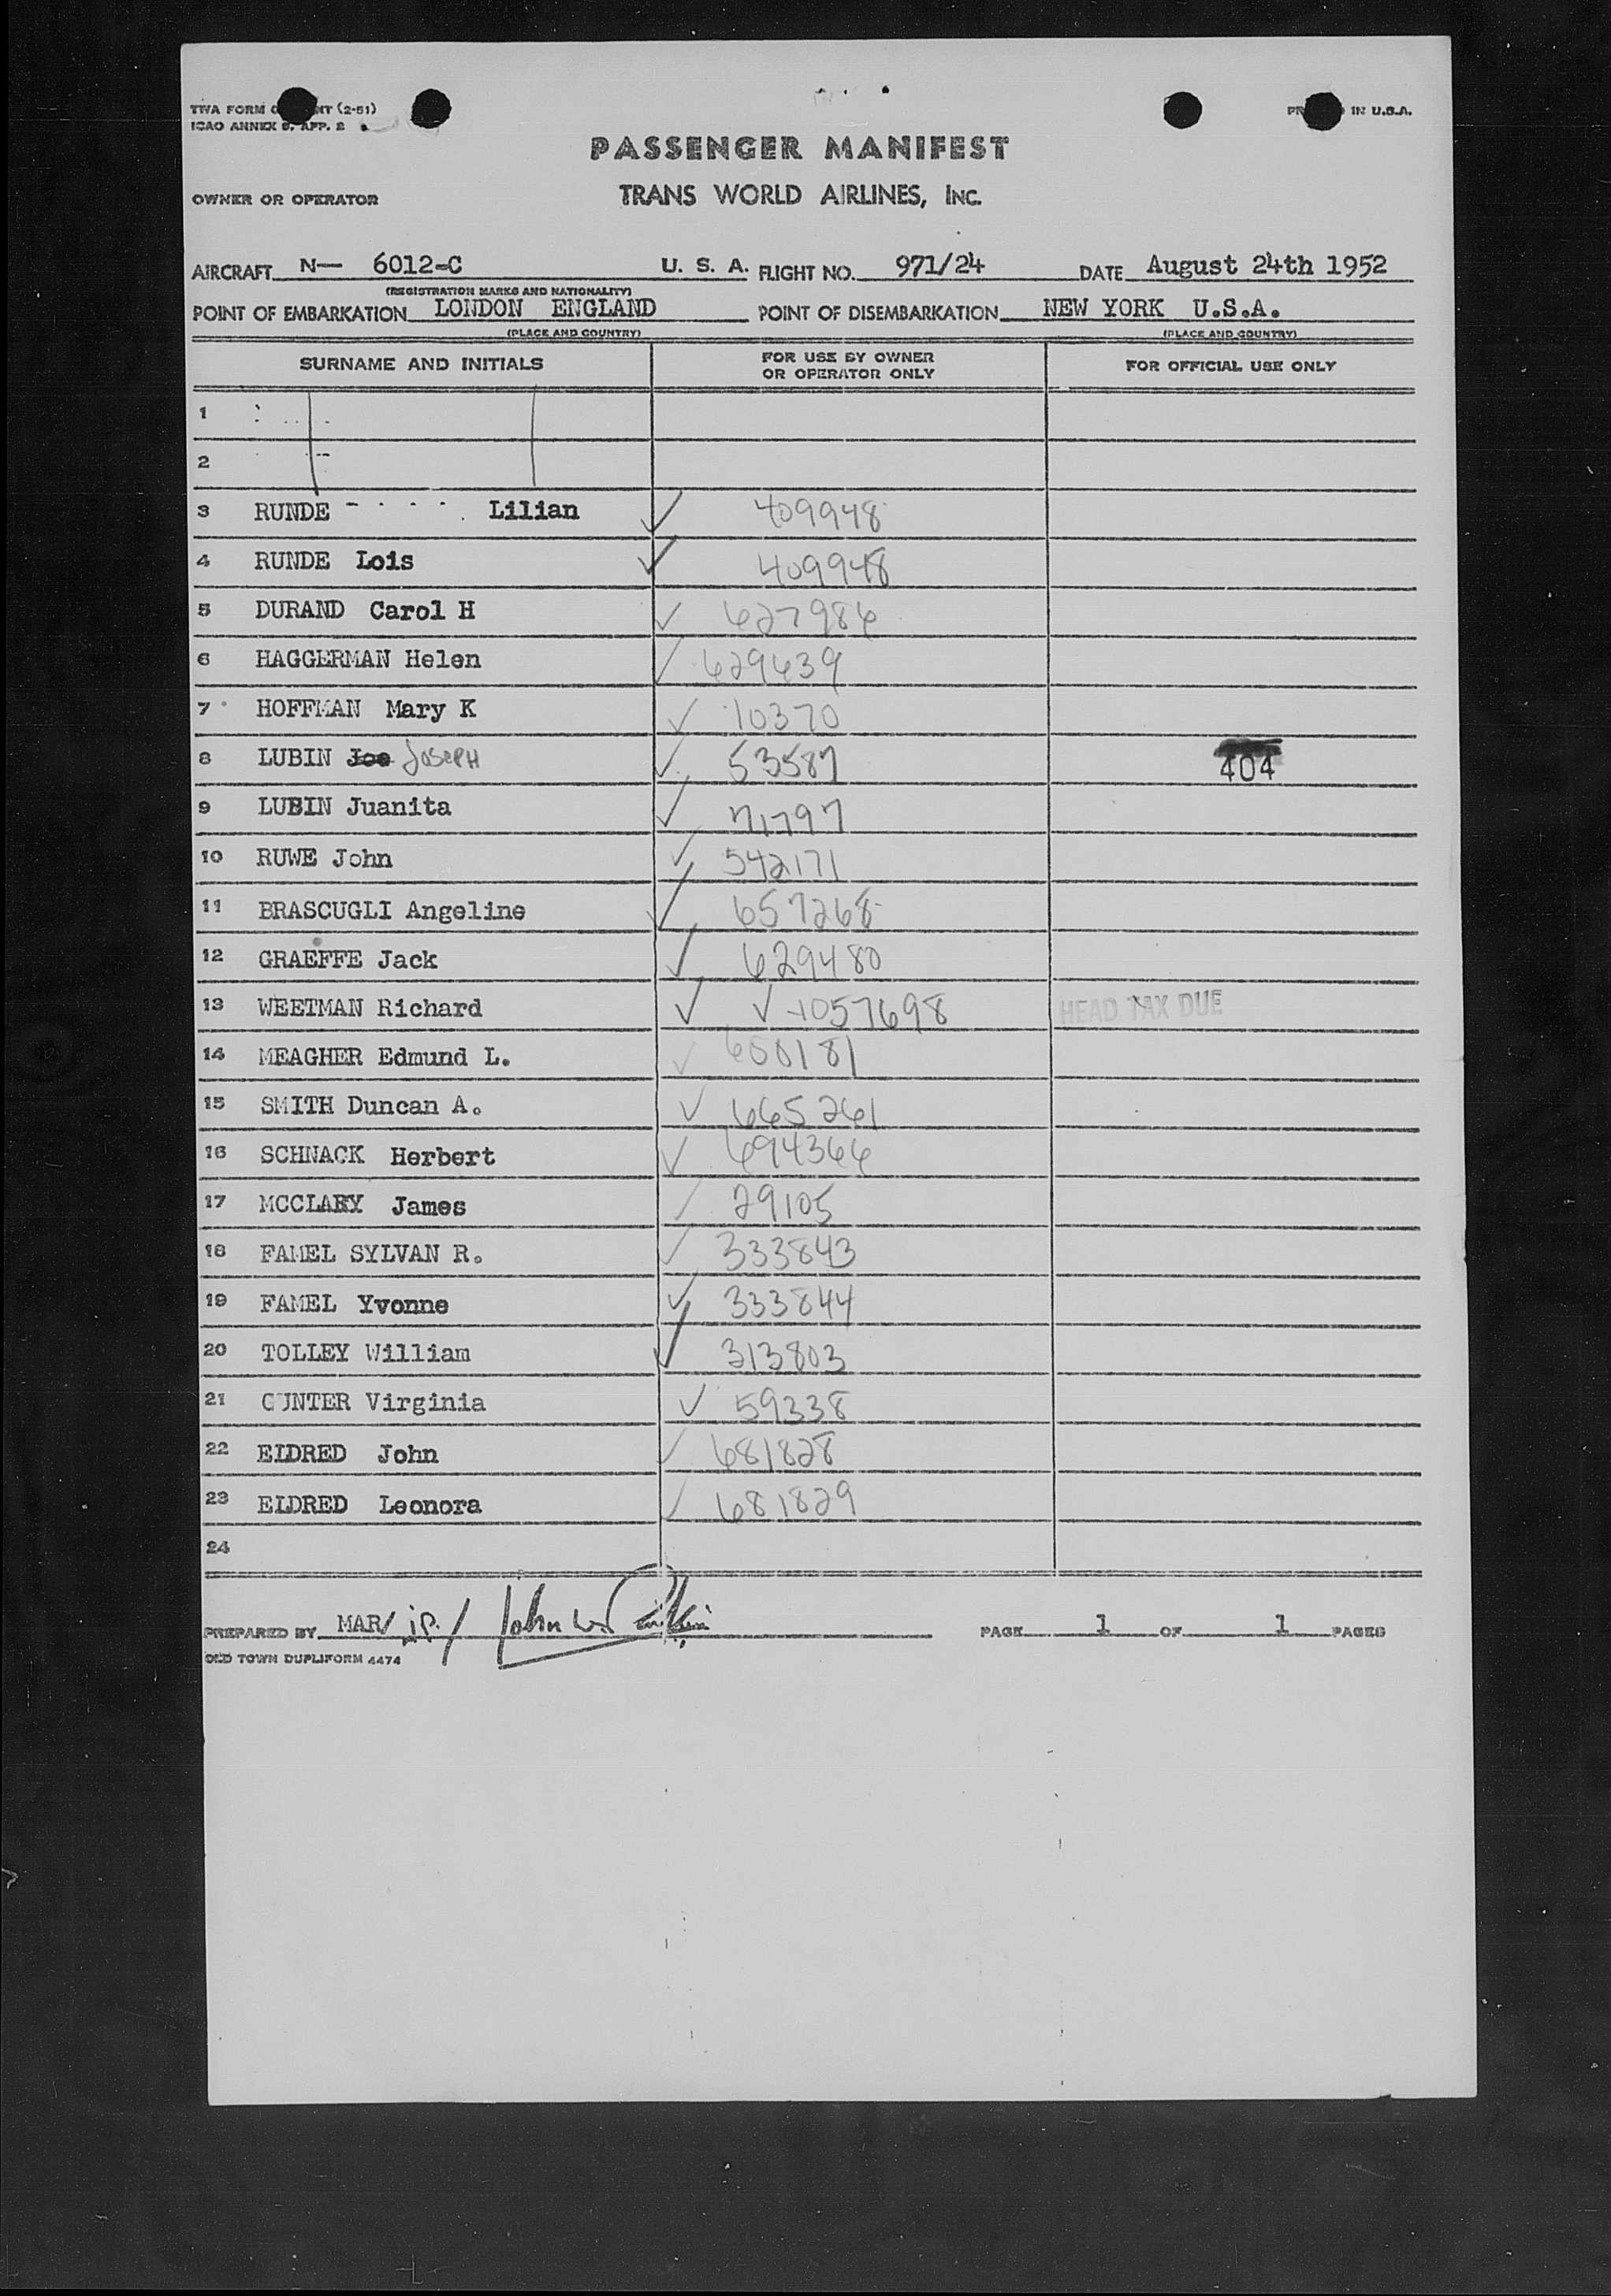 TWA FORM
ICAO ANNEX 9, APP. 2
IN U.S.A.
PASSENGER MANIFEST
OWNER OR OPERATOR TRANS WORLD AIRLINES, INC.
AIRCRAFT N— 6012-C U. S. A. FLIGHT NO. 971/24 DATE August 24th 1952
(REGISTRATION MARKS AND NATIONALITY)
POINT OF EMBARKATION LONDON ENGLAND POINT OF DISEMBARKATION NEW YORK U.S.A.
(PLACE AND COUNTRY) (PLACE AND COUNTRY)
SURNAME AND INITIALS FOR USE BY OWNER OR OPERATOR ONLY FOR OFFICIAL USE ONLY
1
2
3 RUNDE Lilian ✓ 409948
4 RUNDE Lois ✓ 409948
5 DURAND Carol H ✓ 627986
6 HAGGERMAN Helen ✓ 629639
7 HOFFMAN Mary K ✓ 10370
8 LUBIN Joe JOSEPH ✓ 53587 404
9 LUBIN Juanita ✓ 71797
10 RUWE John ✓ 542171
11 BRASCUGLI Angeline ✓ 657268
12 GRAEFFE Jack ✓ 629480
13 WEETMAN Richard ✓ ✓ 1057698 HEAD TAX DUE
14 MEAGHER Edmund L. ✓ 650181
15 SMITH Duncan A. ✓ 665261
16 SCHNACK Herbert ✓ 694366
17 MCCLARY James ✓ 29105
18 FAMEL SYLVAN R. ✓ 333843
19 FAMEL Yvonne ✓ 333844
20 TOLLEY William ✓ 313803
21 GUNTER Virginia ✓ 59338
22 ELDRED John ✓ 681828
23 ELDRED Leonora ✓ 681829
24
PREPARED BY MAR/jp./ John W. PAGE 1 OF 1 PAGES
OLD TOWN DUPLIFORM 4474